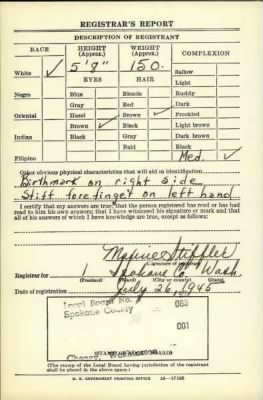 REGISTRAR'S REPORT
DESCRIPTION OF REGISTRANT
RACE HEIGHT (Approx.) WEIGHT (Approx.) COMPLEXION
White ✓ 5'9" 150. Sallow
EYES HAIR Light
Negro Blue Blonde Ruddy
Gray Red Dark
Oriental Hazel Brown ✓ Freckled
Brown ✓ Black Light brown
Indian Black Gray Dark brown
Bald Black
Filipino Med. ✓
Other obvious physical characteristics that will aid in identification
Birthmark on right side
Stiff forefinger on left hand
I certify that my answers are true; that the person registered has read or has had
read to him his own answers; that I have witnessed his signature or mark and that
all of his answers of which I have knowledge are true, except as follows:
Stiffler
(Signature of registrar)
Registrar for 1 Spokane Co. Wash.
(Precinct) (Ward) (City or county) (State)
Date of registration July 26, 1945
Local Board No. 063
Spokane County
001
(STAMP OF LOCAL BOARD)
(The stamp of the Local Board having jurisdiction of the registrant
shall be placed in the above space.)
U. S. GOVERNMENT PRINTING OFFICE 16—17105